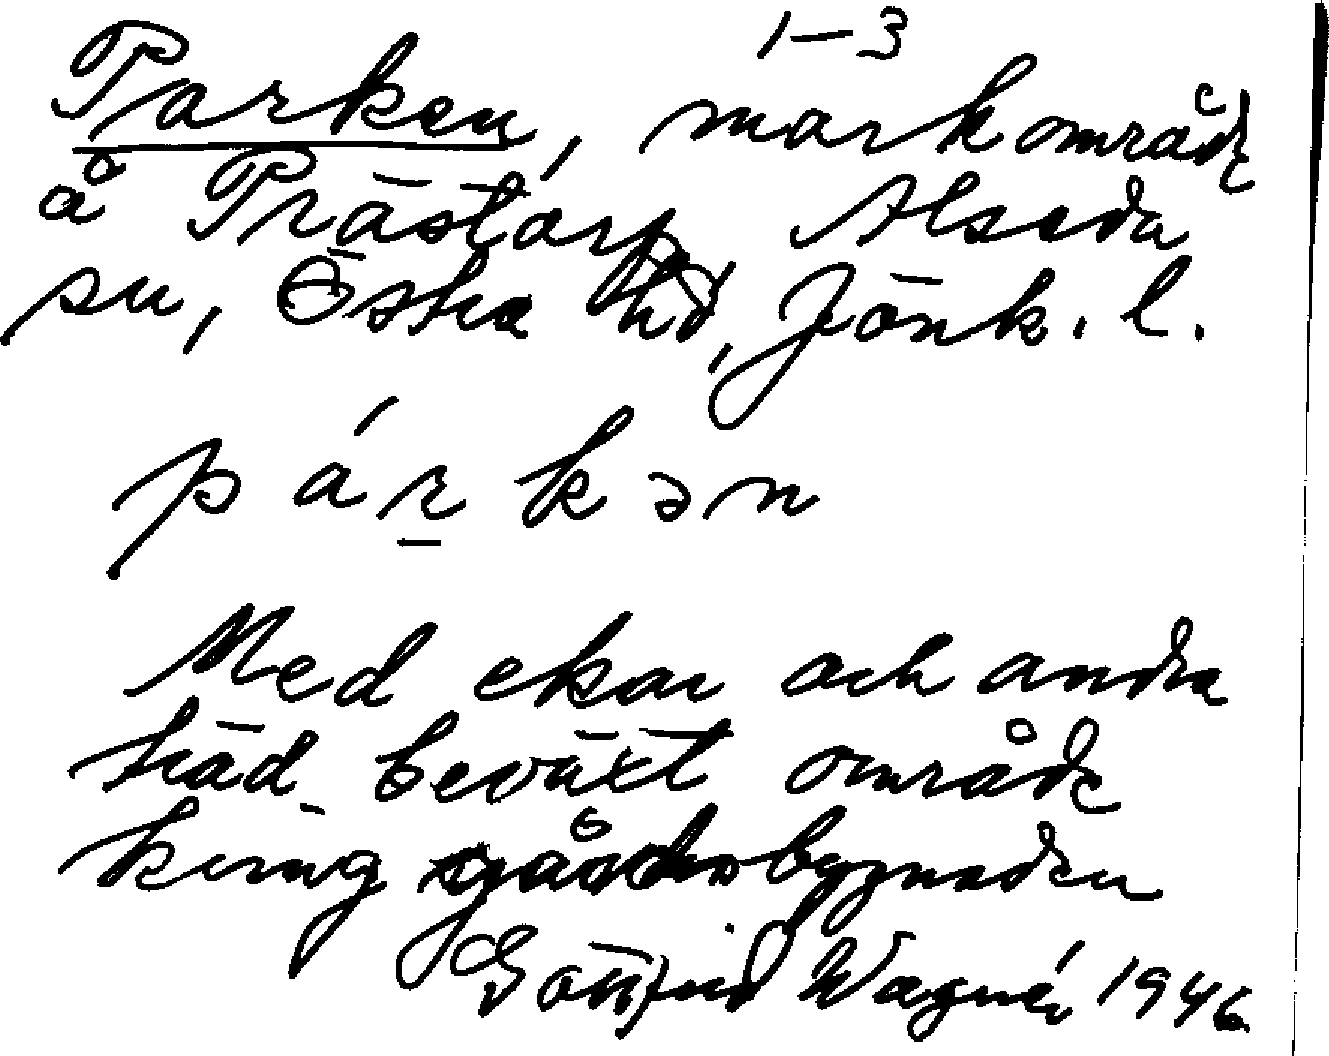 1-3
Parken, markområde
å Prästorp Alseda
sn, Östra hd, Jönk. l.
párkən
Med ekar och andra
träd beväxt område
kring gårdsbyggnaden
Gottfrid Wagnér 1946